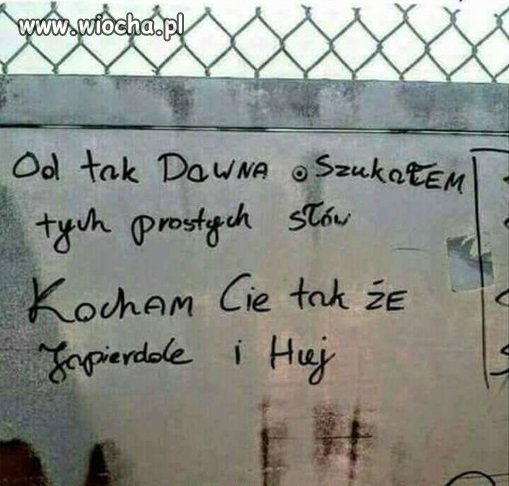 www.wiocha.pl
Od tak DaWNA SzukałEM
tych prostych słów
KochAM Cie tak żE
zapierdole i Huj